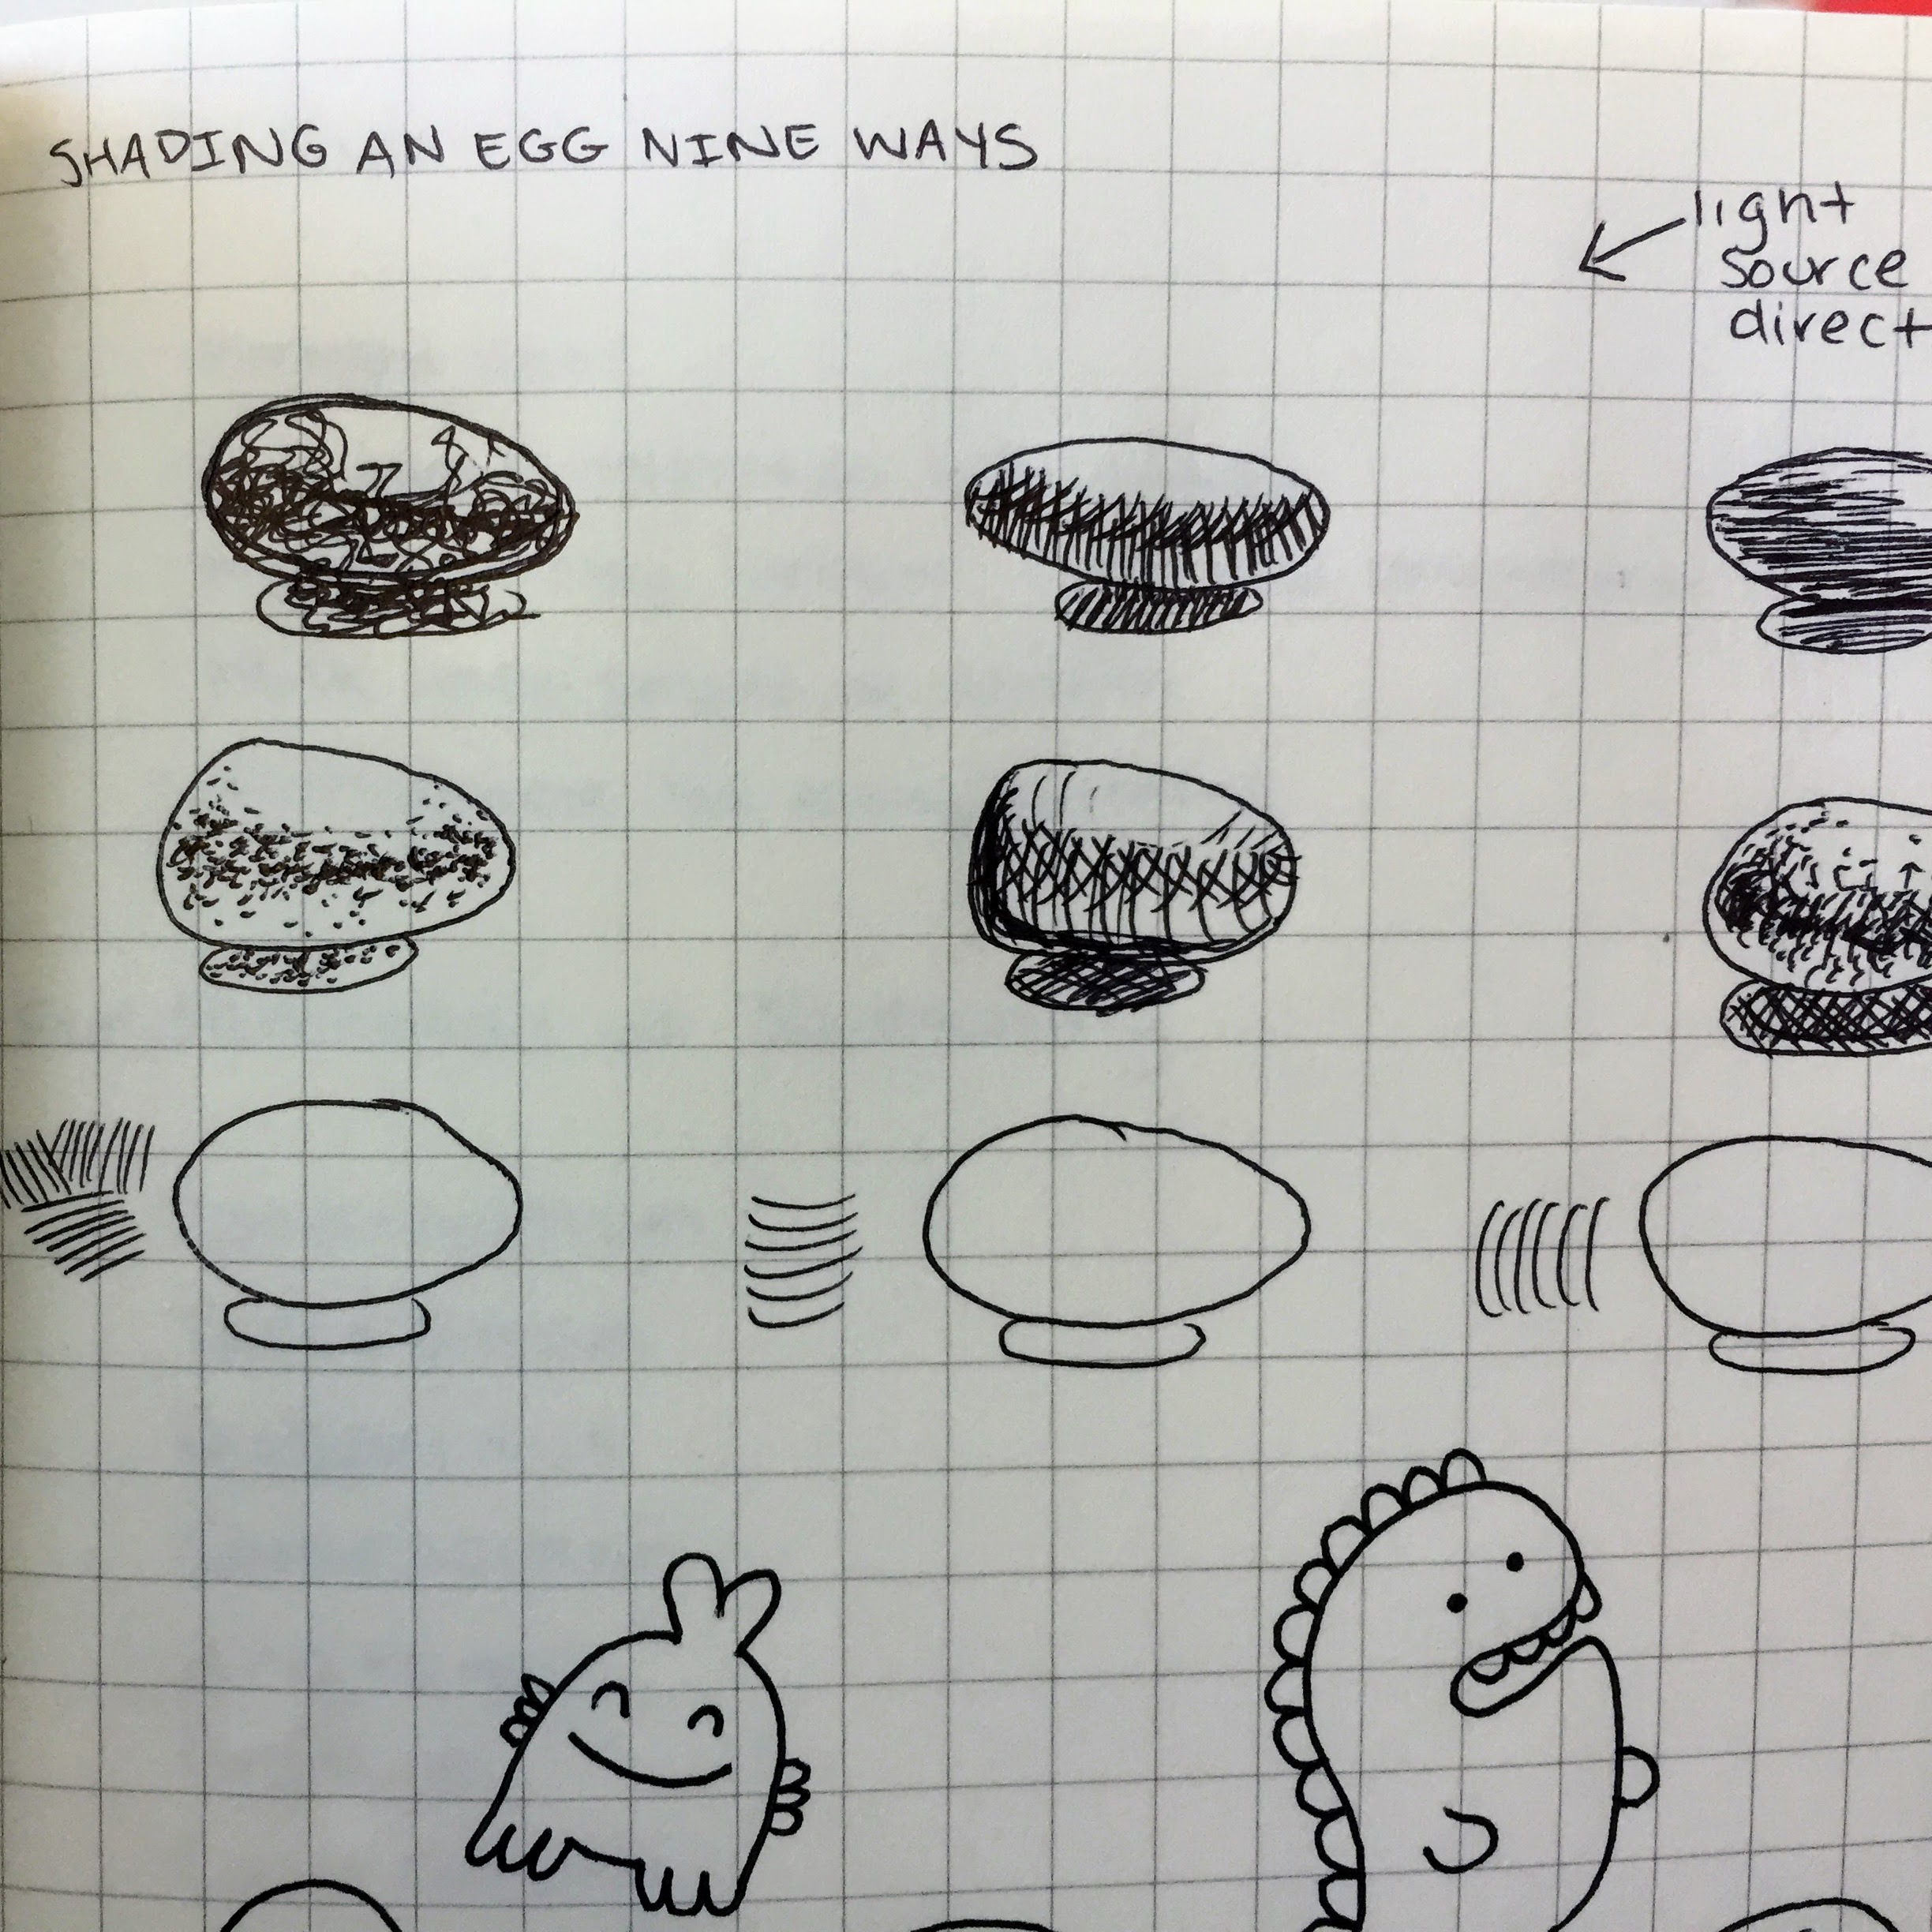 SHADING AN EGG NINE WAYS
light
source
direct